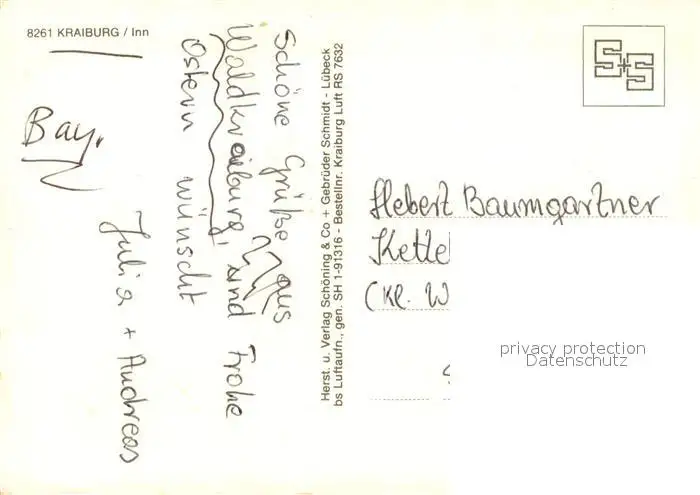 8261 KRAIBURG / Inn
Bay.
Schöne Grüße aus
Waldkraiburg, und Frohe
Ostern wünscht
Julia + Andreas
Herst. u. Verlag Schöning & Co + Gebrüder Schmidt - Lübeck
bs Luftaufn., gen. SH 1-91316 - Bestellnr. Kraiburg Luft RS 7632
S+S
Hebert Baumgartner
Kette
(Kr. W
privacy protection
Datenschutz